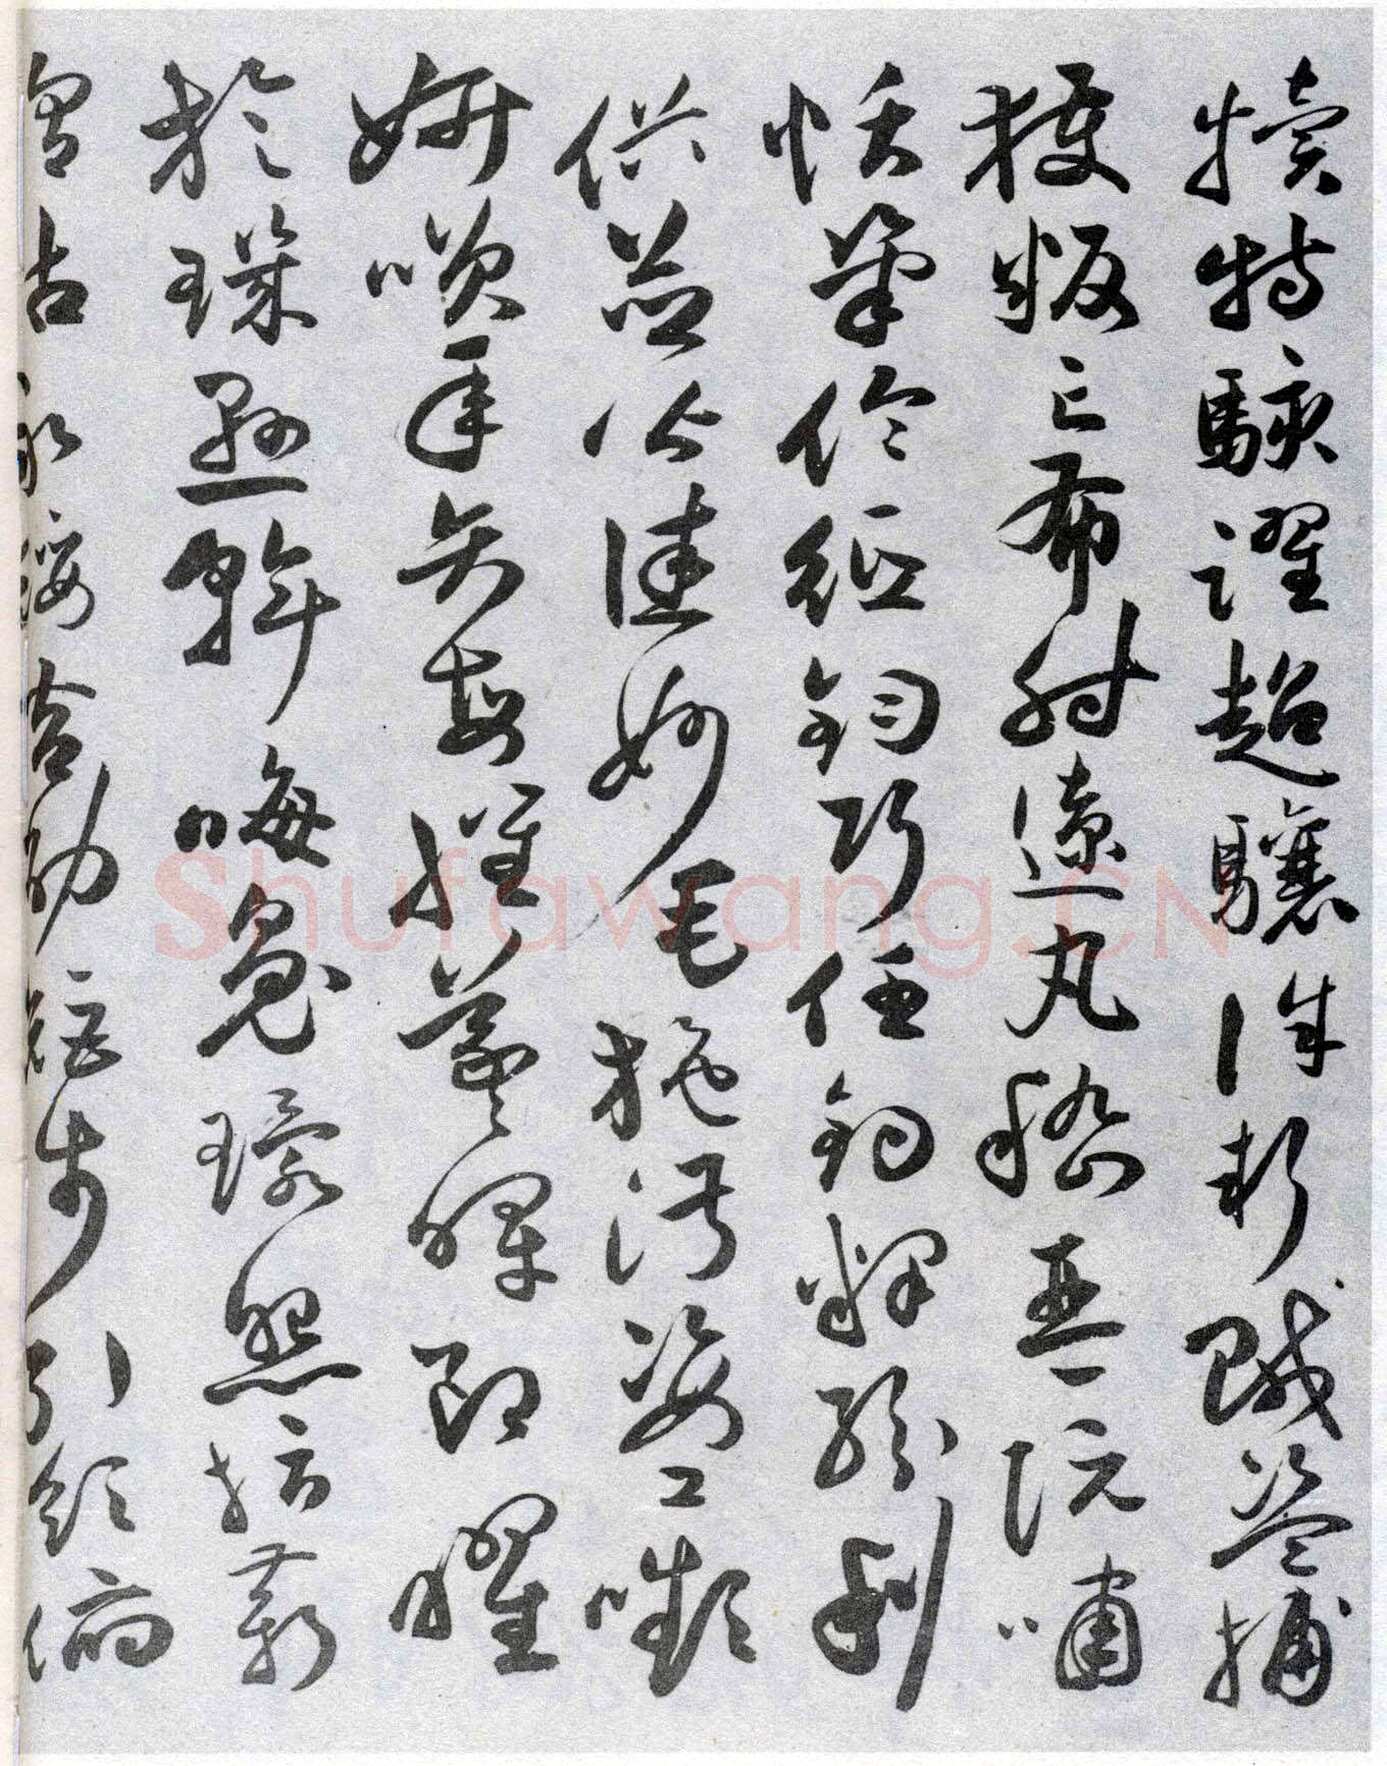 犢特駭躍超驤誅斬賊盜捕
獲叛亡布射遼丸嵇琴阮嘯
恬筆倫紙鈞巧任釣釋紛利
俗並皆佳妙毛施淑姿工顰
妍笑年矢每催羲暉朗曜
旋璣懸斡晦魄環照指薪
脩祜永綏吉劭矩步引領俯
Shufawang.CN